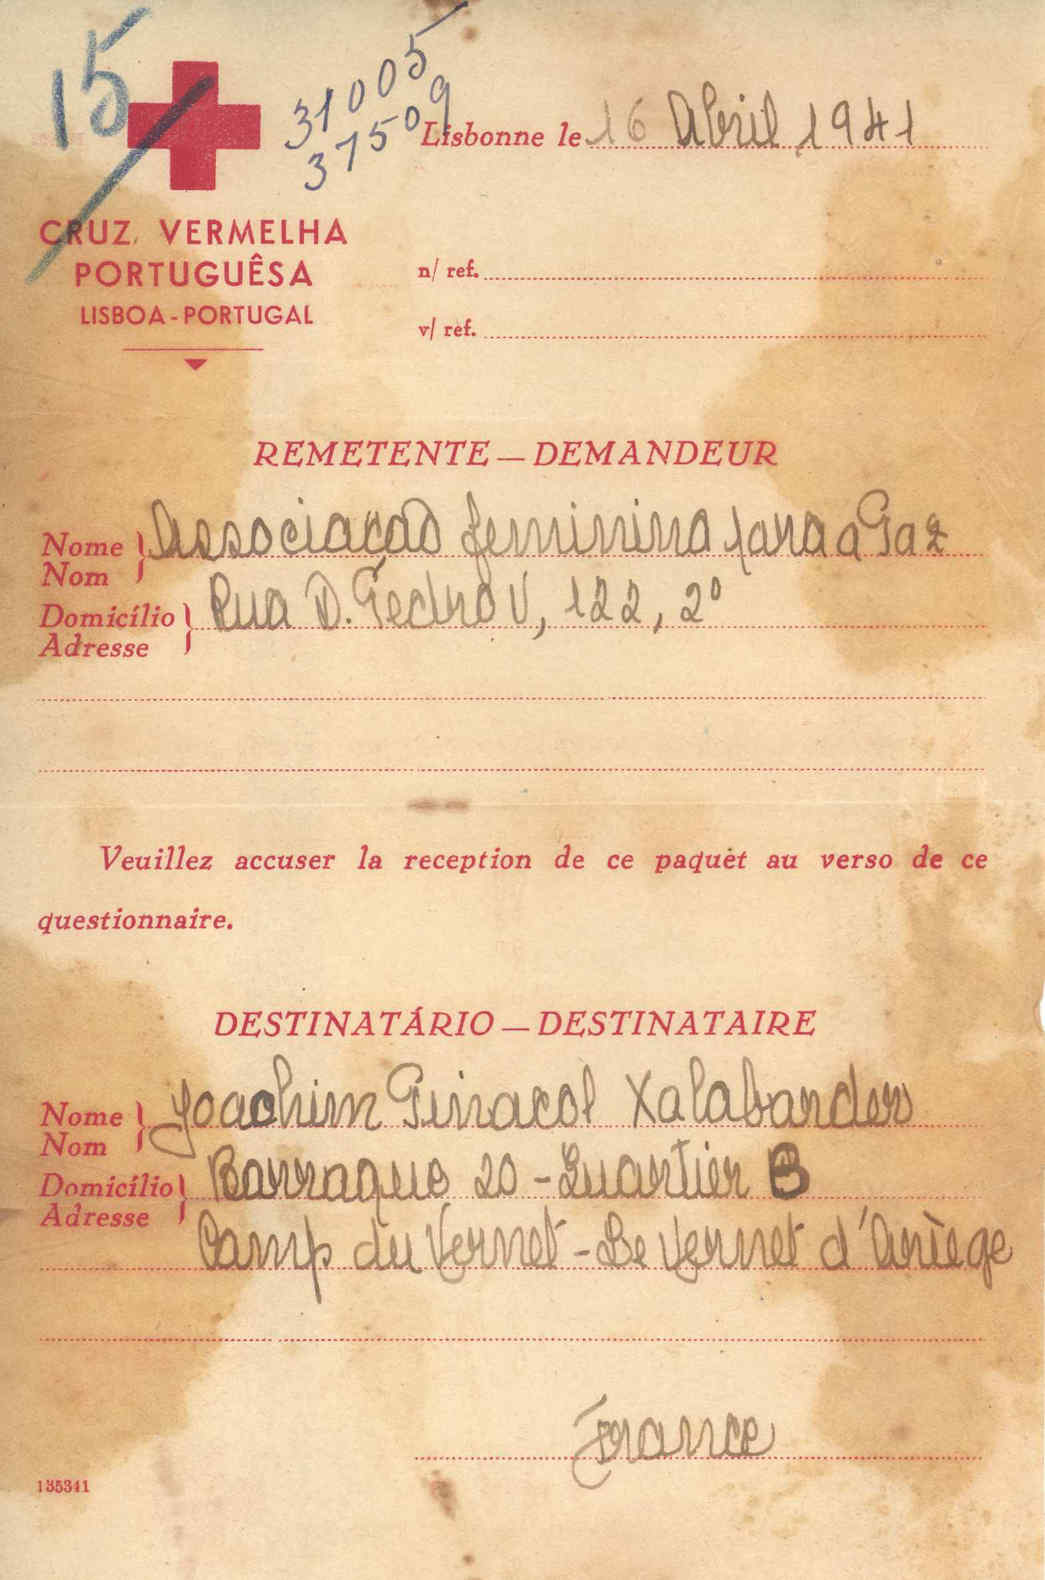 15
31005
37509
Lisbonne le 16 Abril 1941
CRUZ VERMELHA
PORTUGUÊSA
LISBOA-PORTUGAL
n/ ref.
v/ ref.
REMETENTE — DEMANDEUR
Nome Associação feminina para a Paz
Nom
Domicílio Rua D. Pedro V, 122, 2º
Adresse
Veuillez accuser la reception de ce paquet au verso de ce
questionnaire.
DESTINATÁRIO — DESTINATAIRE
Nome Joachim Pinacol Xalabarder
Nom
Domicílio Barraque 20 - Quartier B
Adresse
Camp du Vernet - Le Vernet d'Ariège
France
135341